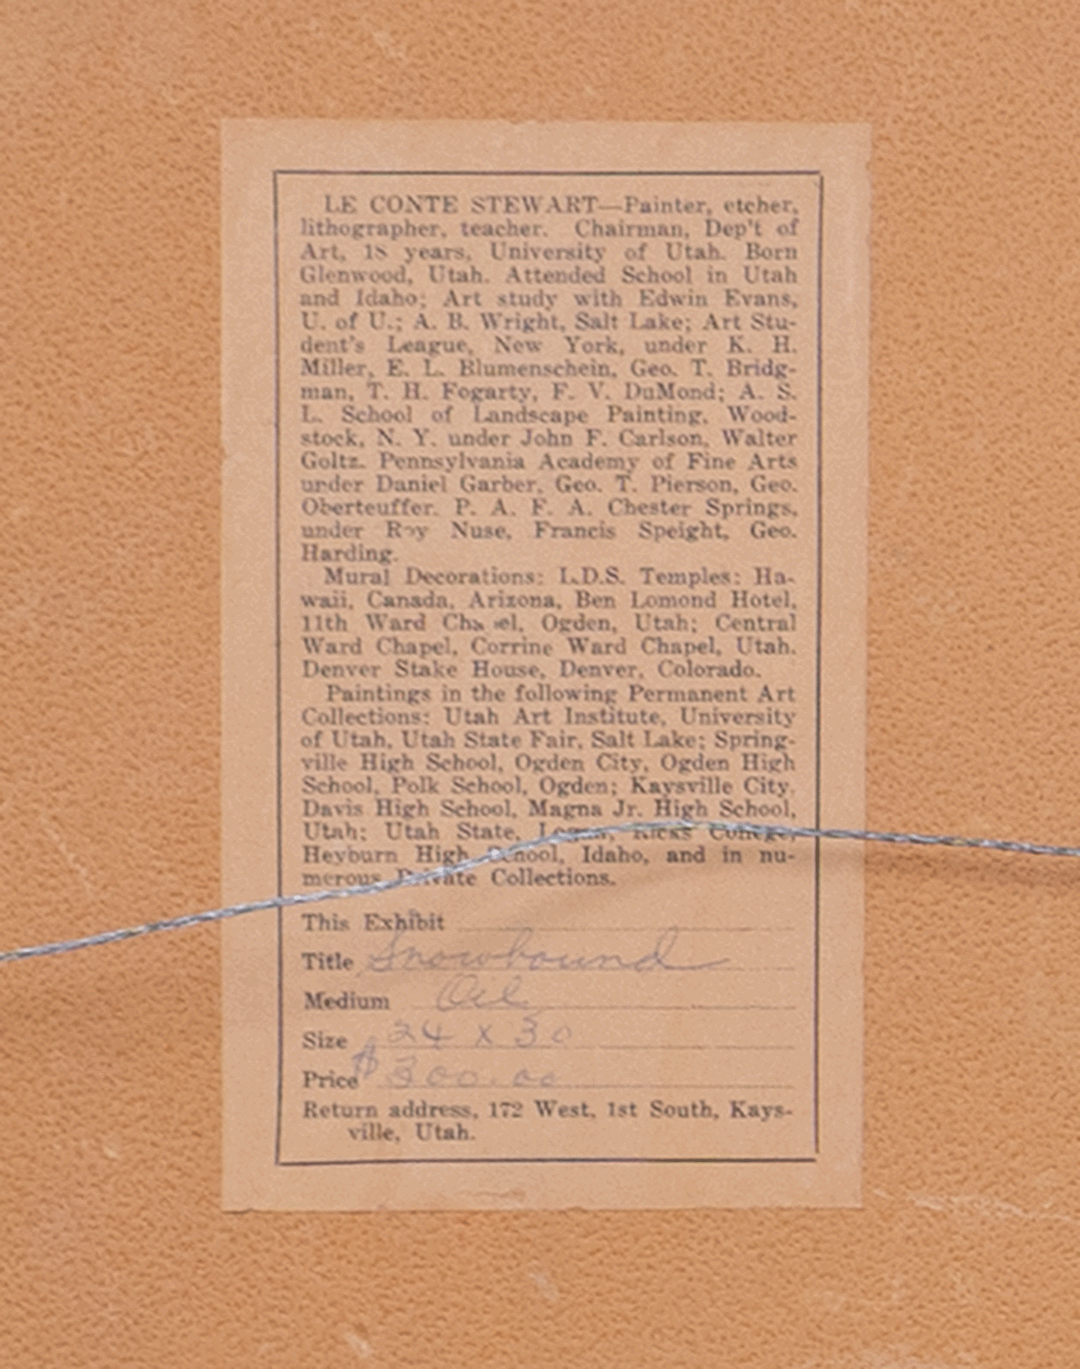 LE CONTE STEWART—Painter, etcher,
lithographer, teacher. Chairman, Dep't of
Art, 18 years, University of Utah. Born
Glenwood, Utah. Attended School in Utah
and Idaho; Art study with Edwin Evans,
U. of U.; A. B. Wright, Salt Lake; Art Stu-
dent's League, New York, under K. H.
Miller, E. L. Blumenschein, Geo. T. Bridg-
man, T. H. Fogarty, F. V. DuMond; A. S.
L. School of Landscape Painting, Wood-
stock, N. Y. under John F. Carlson, Walter
Goltz. Pennsylvania Academy of Fine Arts
under Daniel Garber, Geo. T. Pierson, Geo.
Oberteuffer. P. A. F. A. Chester Springs,
under Roy Nuse, Francis Speight, Geo.
Harding.
Mural Decorations: L.D.S. Temples: Ha-
waii, Canada, Arizona, Ben Lomond Hotel,
11th Ward Chapel, Ogden, Utah; Central
Ward Chapel, Corrine Ward Chapel, Utah.
Denver Stake House, Denver, Colorado.
Paintings in the following Permanent Art
Collections: Utah Art Institute, University
of Utah, Utah State Fair, Salt Lake; Spring-
ville High School, Ogden City, Ogden High
School, Polk School, Ogden; Kaysville City,
Davis High School, Magna Jr. High School,
Utah; Utah State, Logan, Ricks College,
Heyburn High School, Idaho, and in nu-
merous Private Collections.
This Exhibit
Title Snowbound
Medium Oil
Size 24 x 30
Price $300.00
Return address, 172 West, 1st South, Kays-
ville, Utah.